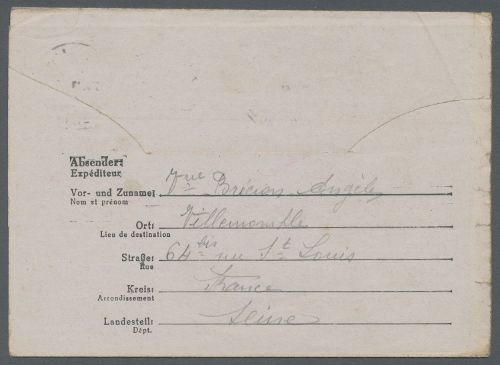 Absender:
Expéditeur
Vor- und Zuname: Vve Brécion Angèle
Nom et prénom
Ort: Villemomble
Lieu de destination
Straße: 64 bis rue St Louis
Rue
Kreis: France
Arrondissement
Landesteil: Seine
Dépt.